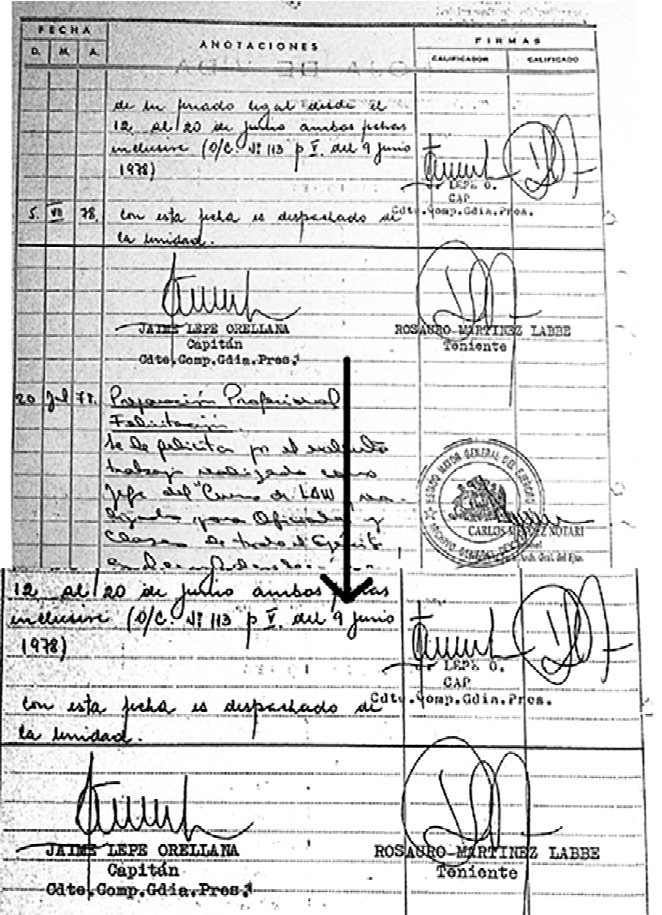 FECHA
D. M. A.
ANOTACIONES
FIRMAS
CALIFICADOR CALIFICADO
de un feriado legal desde el
12 al 20 de junio ambas fechas
inclusive (O/C. Nº 113 p I. del 9 junio
1978)
LEPE O.
CAP
Cdte.Comp.Gdia.Pres.
5. VII 78. con esta fecha es despachado de
la unidad.
JAIME LEPE ORELLANA
Capitán
Cdte.Comp.Gdia.Pres.
ROSAURO MARTINEZ LABBE
Teniente
20 Jul 78. Preparación Profesional
Felicitación.
Se le felicita por el
trabajo realizado como
Jefe del "Curso de LAW
para Oficiales y
Clases de todo el Ejército
ESTADO MAYOR GENERAL DEL EJERCITO
ARCHIVO GENERAL
CARLOS NOTARI
12 al 20 de junio ambas fechas
inclusive (O/C. Nº 113 p I. del 9 junio
1978)
LEPE O.
CAP
Cdte.Comp.Gdia.Pres.
con esta fecha es despachado de
la unidad.
JAIME LEPE ORELLANA
Capitán
Cdte.Comp.Gdia.Pres.
ROSAURO MARTINEZ LABBE
Teniente